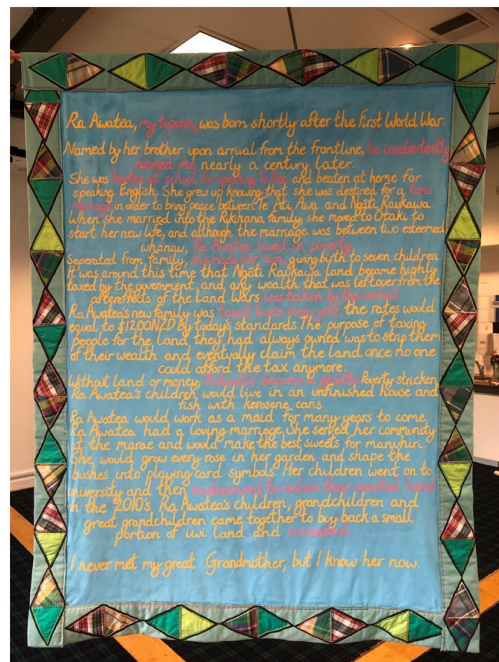 Ra Awatea, my tupuna, was born shortly after the First World War.
Named by her brother upon arrival from the frontline, he inadvertently
named me nearly a century later.
She was beaten at school for speaking Te Reo and beaten at home for
speaking English. She grew up knowing that she was destined for a land
marriage in order to bring peace between Te Ati Awa and Ngāti Raukawa.
When she married into the Rikihana family, she moved to Otaki to
start her new life, and although the marriage was between two esteemed
whanau, Ra Awatea lived in poverty.
Seperated from family, she made her own, giving birth to seven children.
It was around this time that Ngāti Raukawa land became highly
taxed by the government, and any wealth that was left over from the
aftereffects of the Land Wars was taken by the
Ra Awatea's new family was taxed twice every year, the rates would
equal to $1200NZD By today's standards. The purpose of taxing
people for the land they had always owned was to strip them
of their wealth and eventually claim the land once no one
could afford the tax anymore.
Without land or money, became a Poverty stricken,
Ra Awatea's children would live in an unfinished house and
fish with kerosene cans.
Ra Awatea would work as a maid for many years to come.
Ra Awatea had a loving marriage. She served her community
at the marae and would make the best sweets for manuhiri.
She would grow every rose in her garden, and shape the
bushes into playing card symbols. Her children went on to
university and then endeavoured to reclaim their ancestral land
In the 2010's, Ra Awatea's children, grandchildren and
great grandchildren came together to buy back a small
portion of iwi land and succeeded.
I never met my great Grandmother, but I know her now.